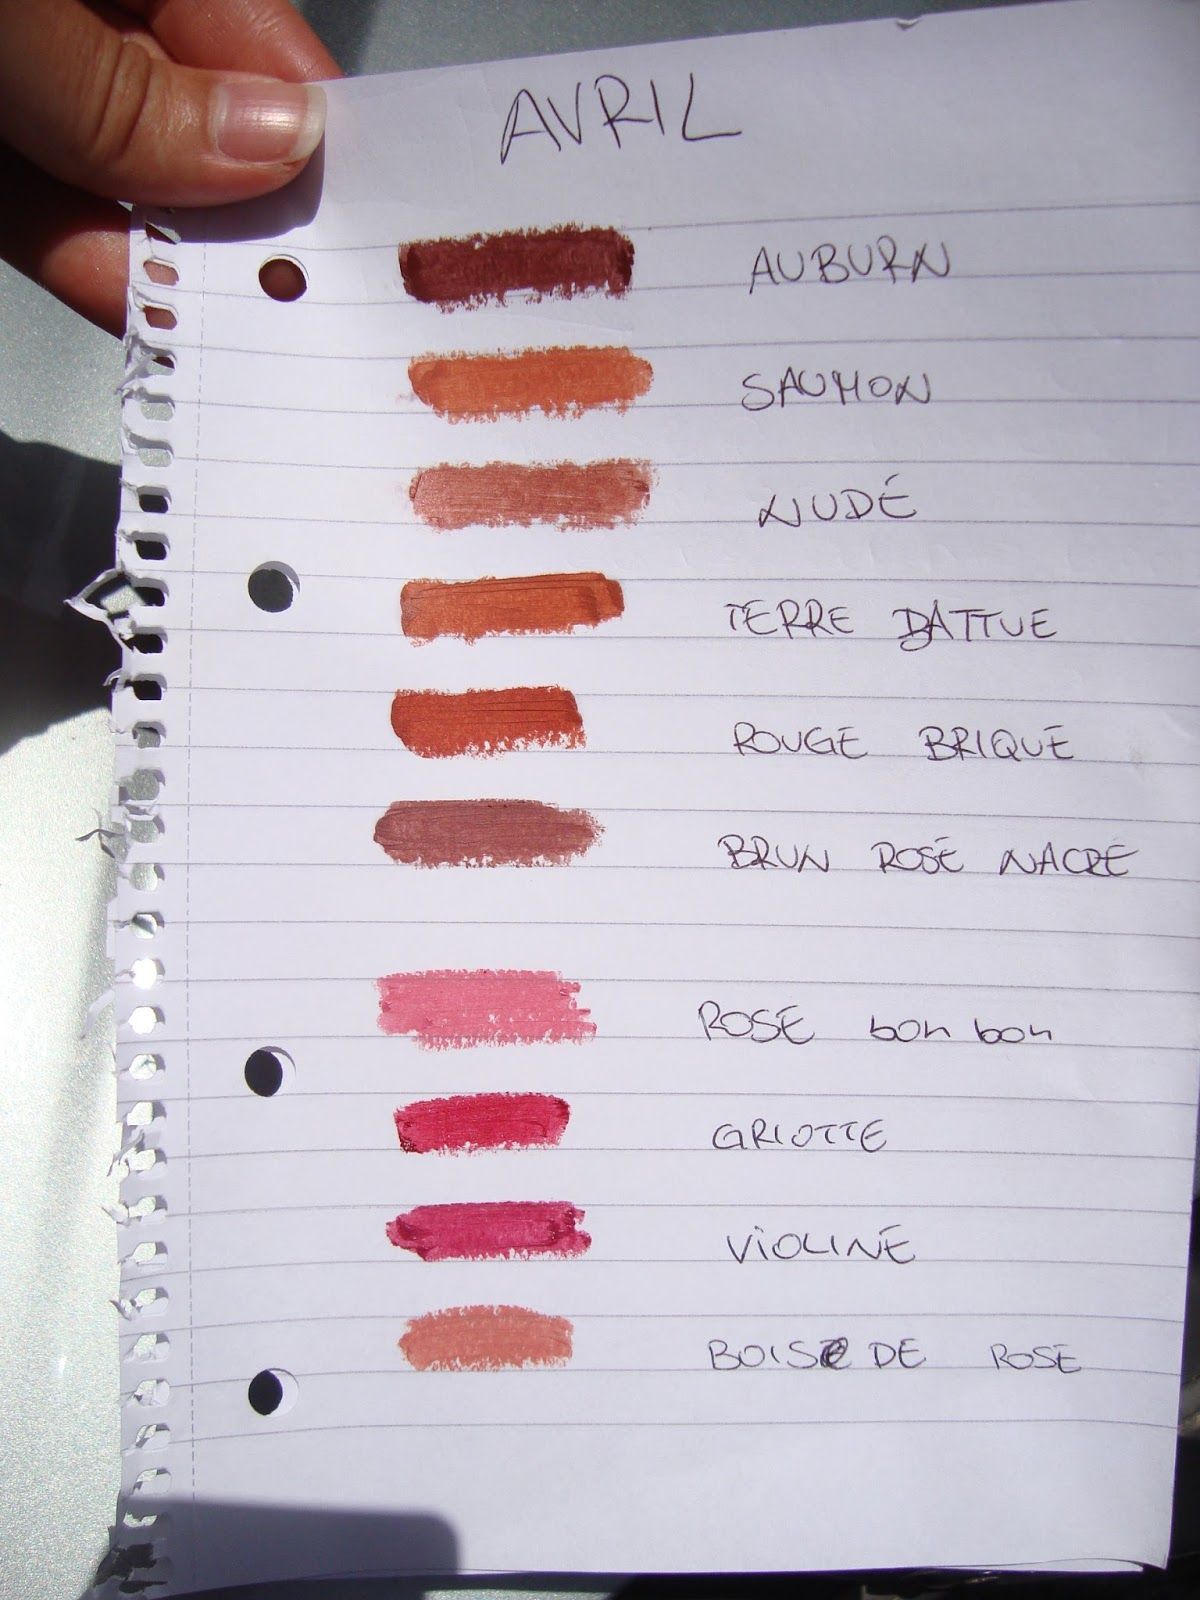 AVRIL
AUBURN
SAUMON
NUDE
TERRE BATTUE
ROUGE BRIQUE
BRUN ROSÉ NACRE
ROSE bon bon
GRIOTTE
VIOLINE
BOIS DE ROSE